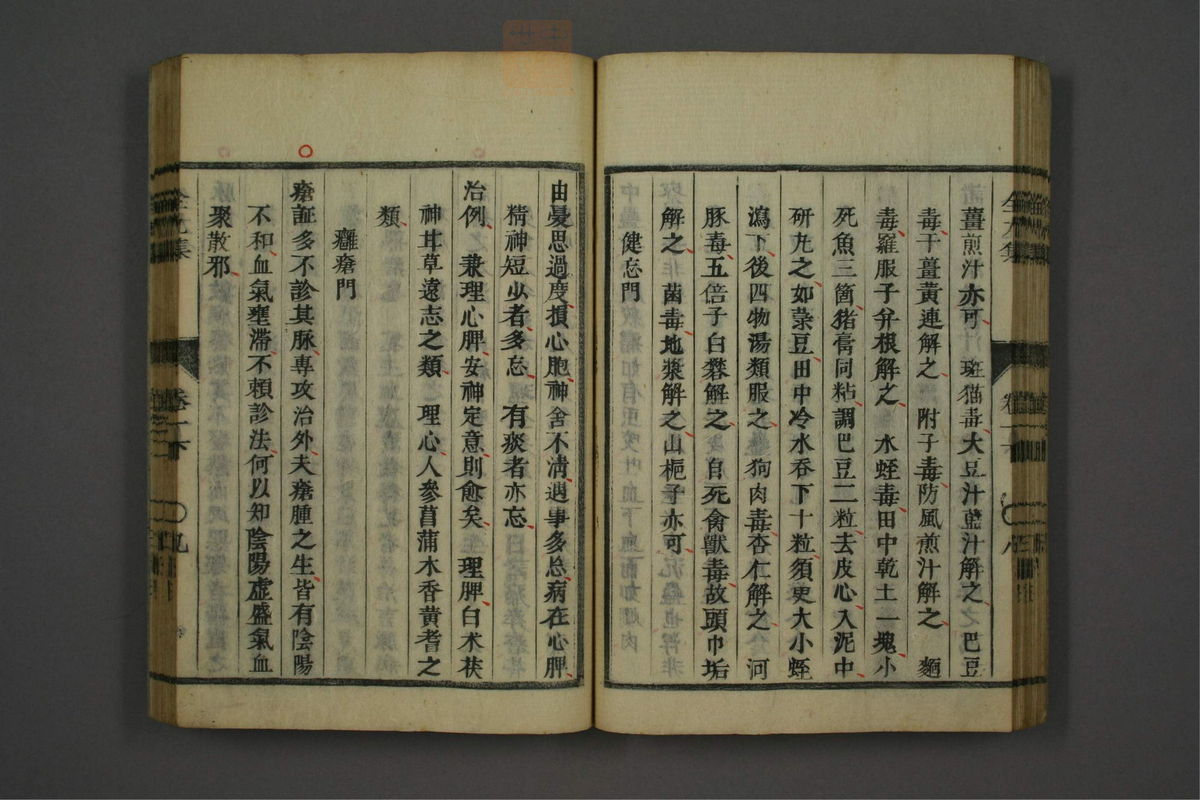 薑煎汁亦可斑猫毒大豆汁藍汁解之巴豆
毒干薑黃連解之附子毒防風煎汁解之麵
毒羅服子并根解之水蛭毒田中乾土一塊小
死魚三箇猪膏同粘調巴豆二粒去皮心入泥中
研丸之如菉豆田中冷水吞下十粒須更大小蛭
瀉下後四物湯類服之狗肉毒杏仁解之河
豚毒五倍子白礬解之自死禽獸毒故頭巾垢
解之菌毒地漿解之山梔子亦可
健忘門
由憂思過度損心胞神舍不清遇事多忘病在心脾
精神短少者多忘有痰者亦忘
治例兼理心脾安神定意則愈矣理脾白术茯
神甘草遠志之類理心人參菖蒲木香黃耆之
類
癰瘡門
瘡証多不診其脉專攻治外夫瘡腫之生皆有陰陽
不和血氣壅滯不賴診法何以知陰陽虛盛氣血
聚散邪
卷一下
九